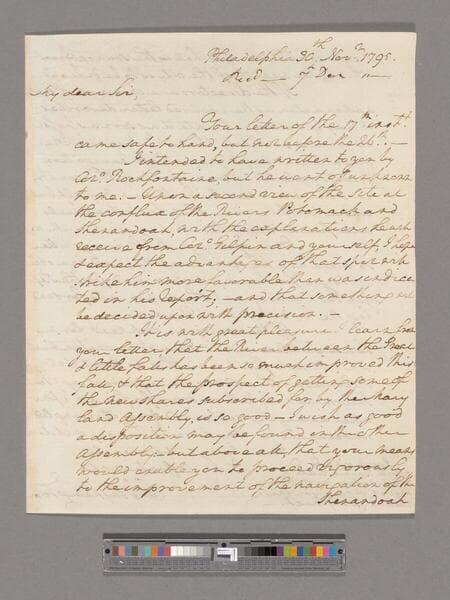 Philadelphia 30th Novr 1795.
Recd 7 Decr
My dear Sir,
Your letter of the 17th instt
came safe to hand, but not before the 26th. —
I intended to have written to you by
Colo Rochfontaine, but he went off unknown
to me. — Upon a second view of the site at
the conflux of the Rivers Potomack and
Shenandoah, with the explanations he wd
receive from Colo Gilpin and yourself, I hope
& expect the advantages of that spot will
strike him more favorable than was indica-
ted in his report; — and that something will
be decided upon with precision. —
It is with great pleasure I learn from
your letter, that the River between the Great
& little falls has been so much improved this
fall, & that the prospect of getting some of
the new shares subscribed for by the Mary
land Assembly, is so good — I wish as good
a disposition may be found in the other
Assembly — but above all, that your means
would enable you to proceed vigorously
to the improvement of the navigation of the
Shenandoah